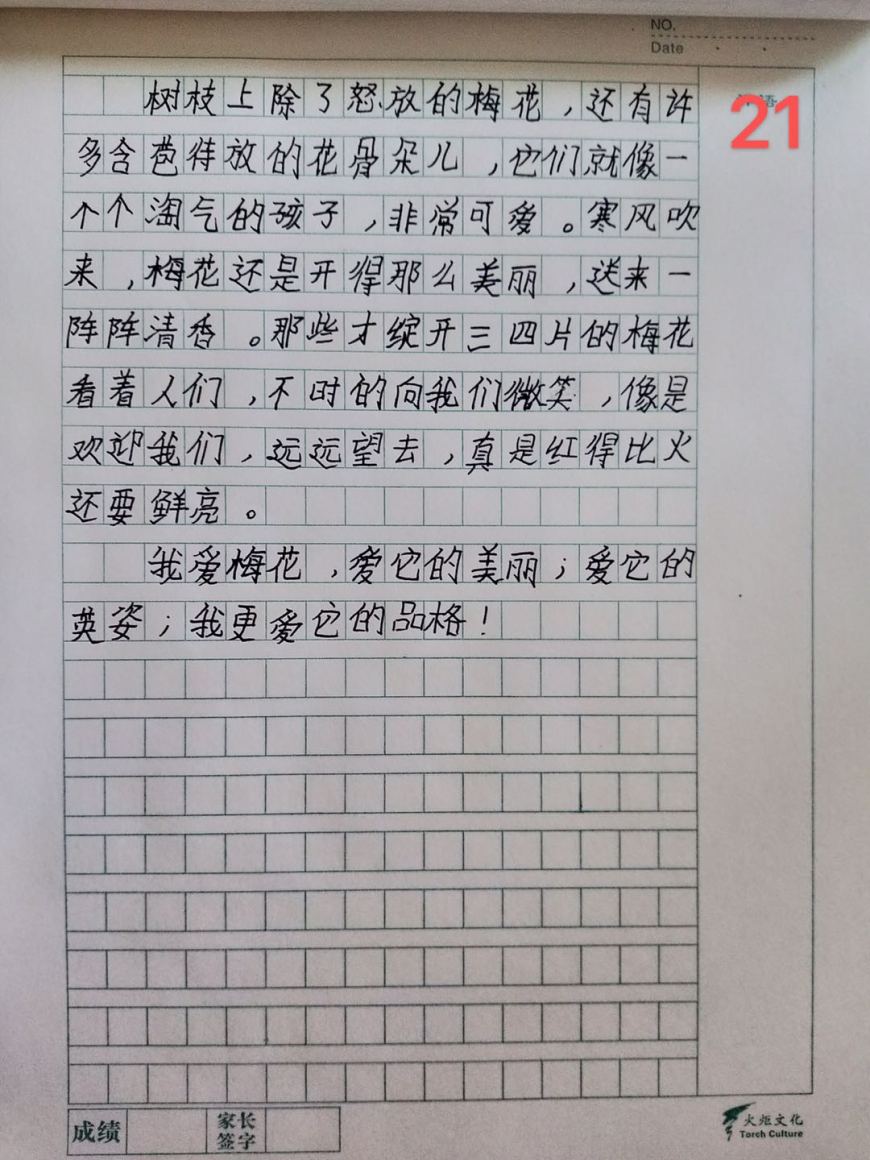 NO.
Date
21
树枝上除了怒放的梅花，还有许
多含苞待放的花骨朵儿，它们就像一
个个淘气的孩子，非常可爱。寒风吹
来，梅花还是开得那么美丽，送来一
阵阵清香。那些才绽开三四片的梅花
看着人们，不时的向我们微笑，像是
欢迎我们，远远望去，真是红得比火
还要鲜亮。
我爱梅花，爱它的美丽；爱它的
英姿；我更爱它的品格！
成绩
家长
签字
火炬文化
Torch Culture